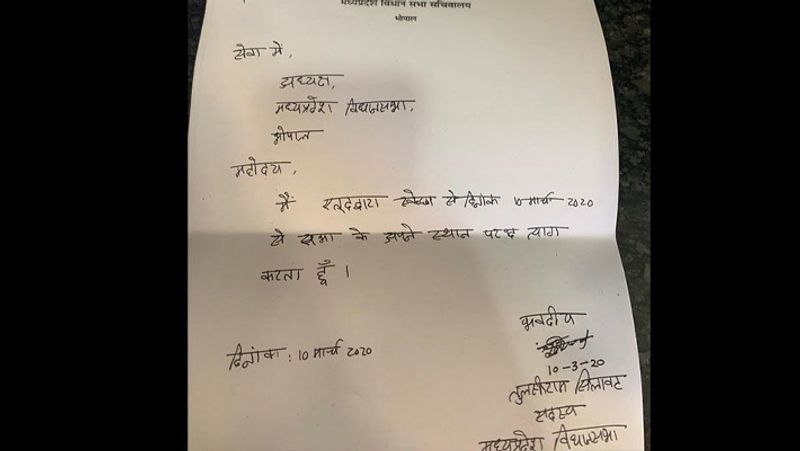 मध्यप्रदेश विधान सभा सचिवालय
भोपाल
सेवा में,
अध्यक्ष,
मध्यप्रदेश विधानसभा,
भोपाल
महोदय,
मैं एतद्द्वारा स्वेच्छा से दिनांक 10 मार्च 2020
से सभा के अपने स्थान त्याग
करता हूँ ।
भवदीय
10-3-20
दिनांक : 10 मार्च 2020
तुलसीराम सिलावट
सदस्य
मध्यप्रदेश विधानसभा